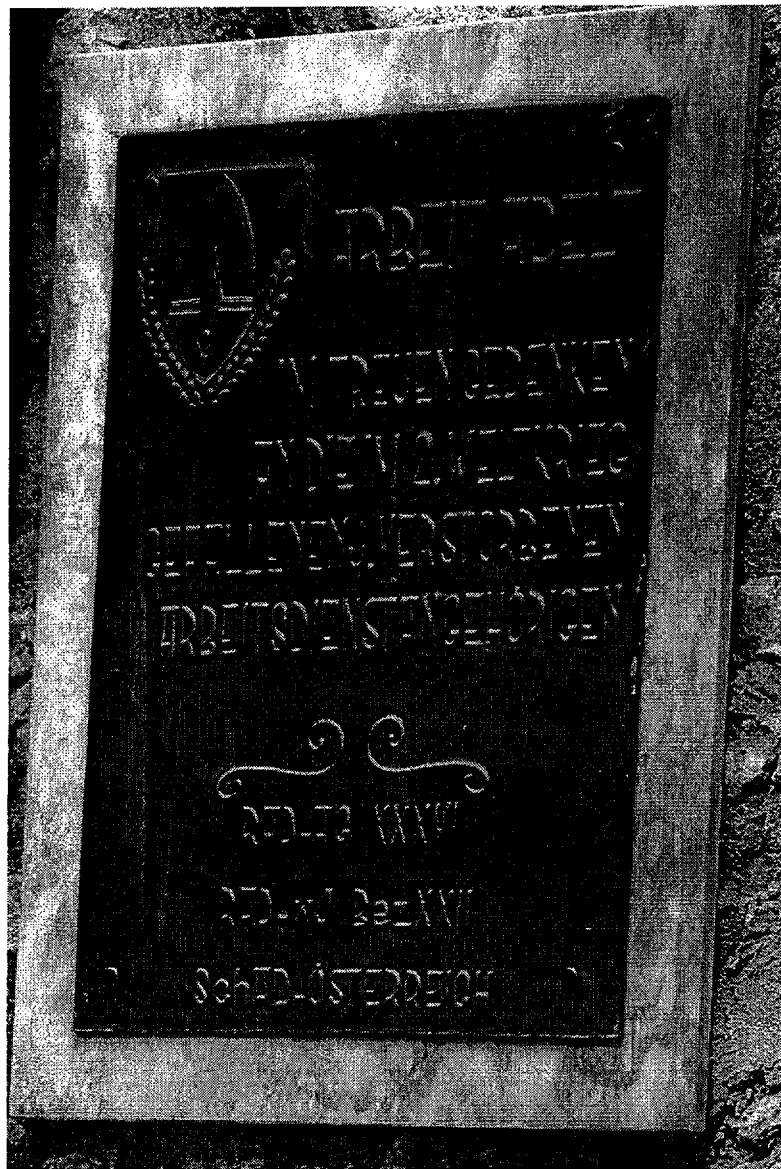 ARBEIT ADELT
IN TREUEM GEDENKEN
AN DIE IM 2. WELTKRIEG
GEFALLENEN U. VERSTORBENEN
ARBEITSDIENSTANGEHÖRIGEN
RAD-AG
RAD-wJ Bez
SchAD-ÖSTERREICH